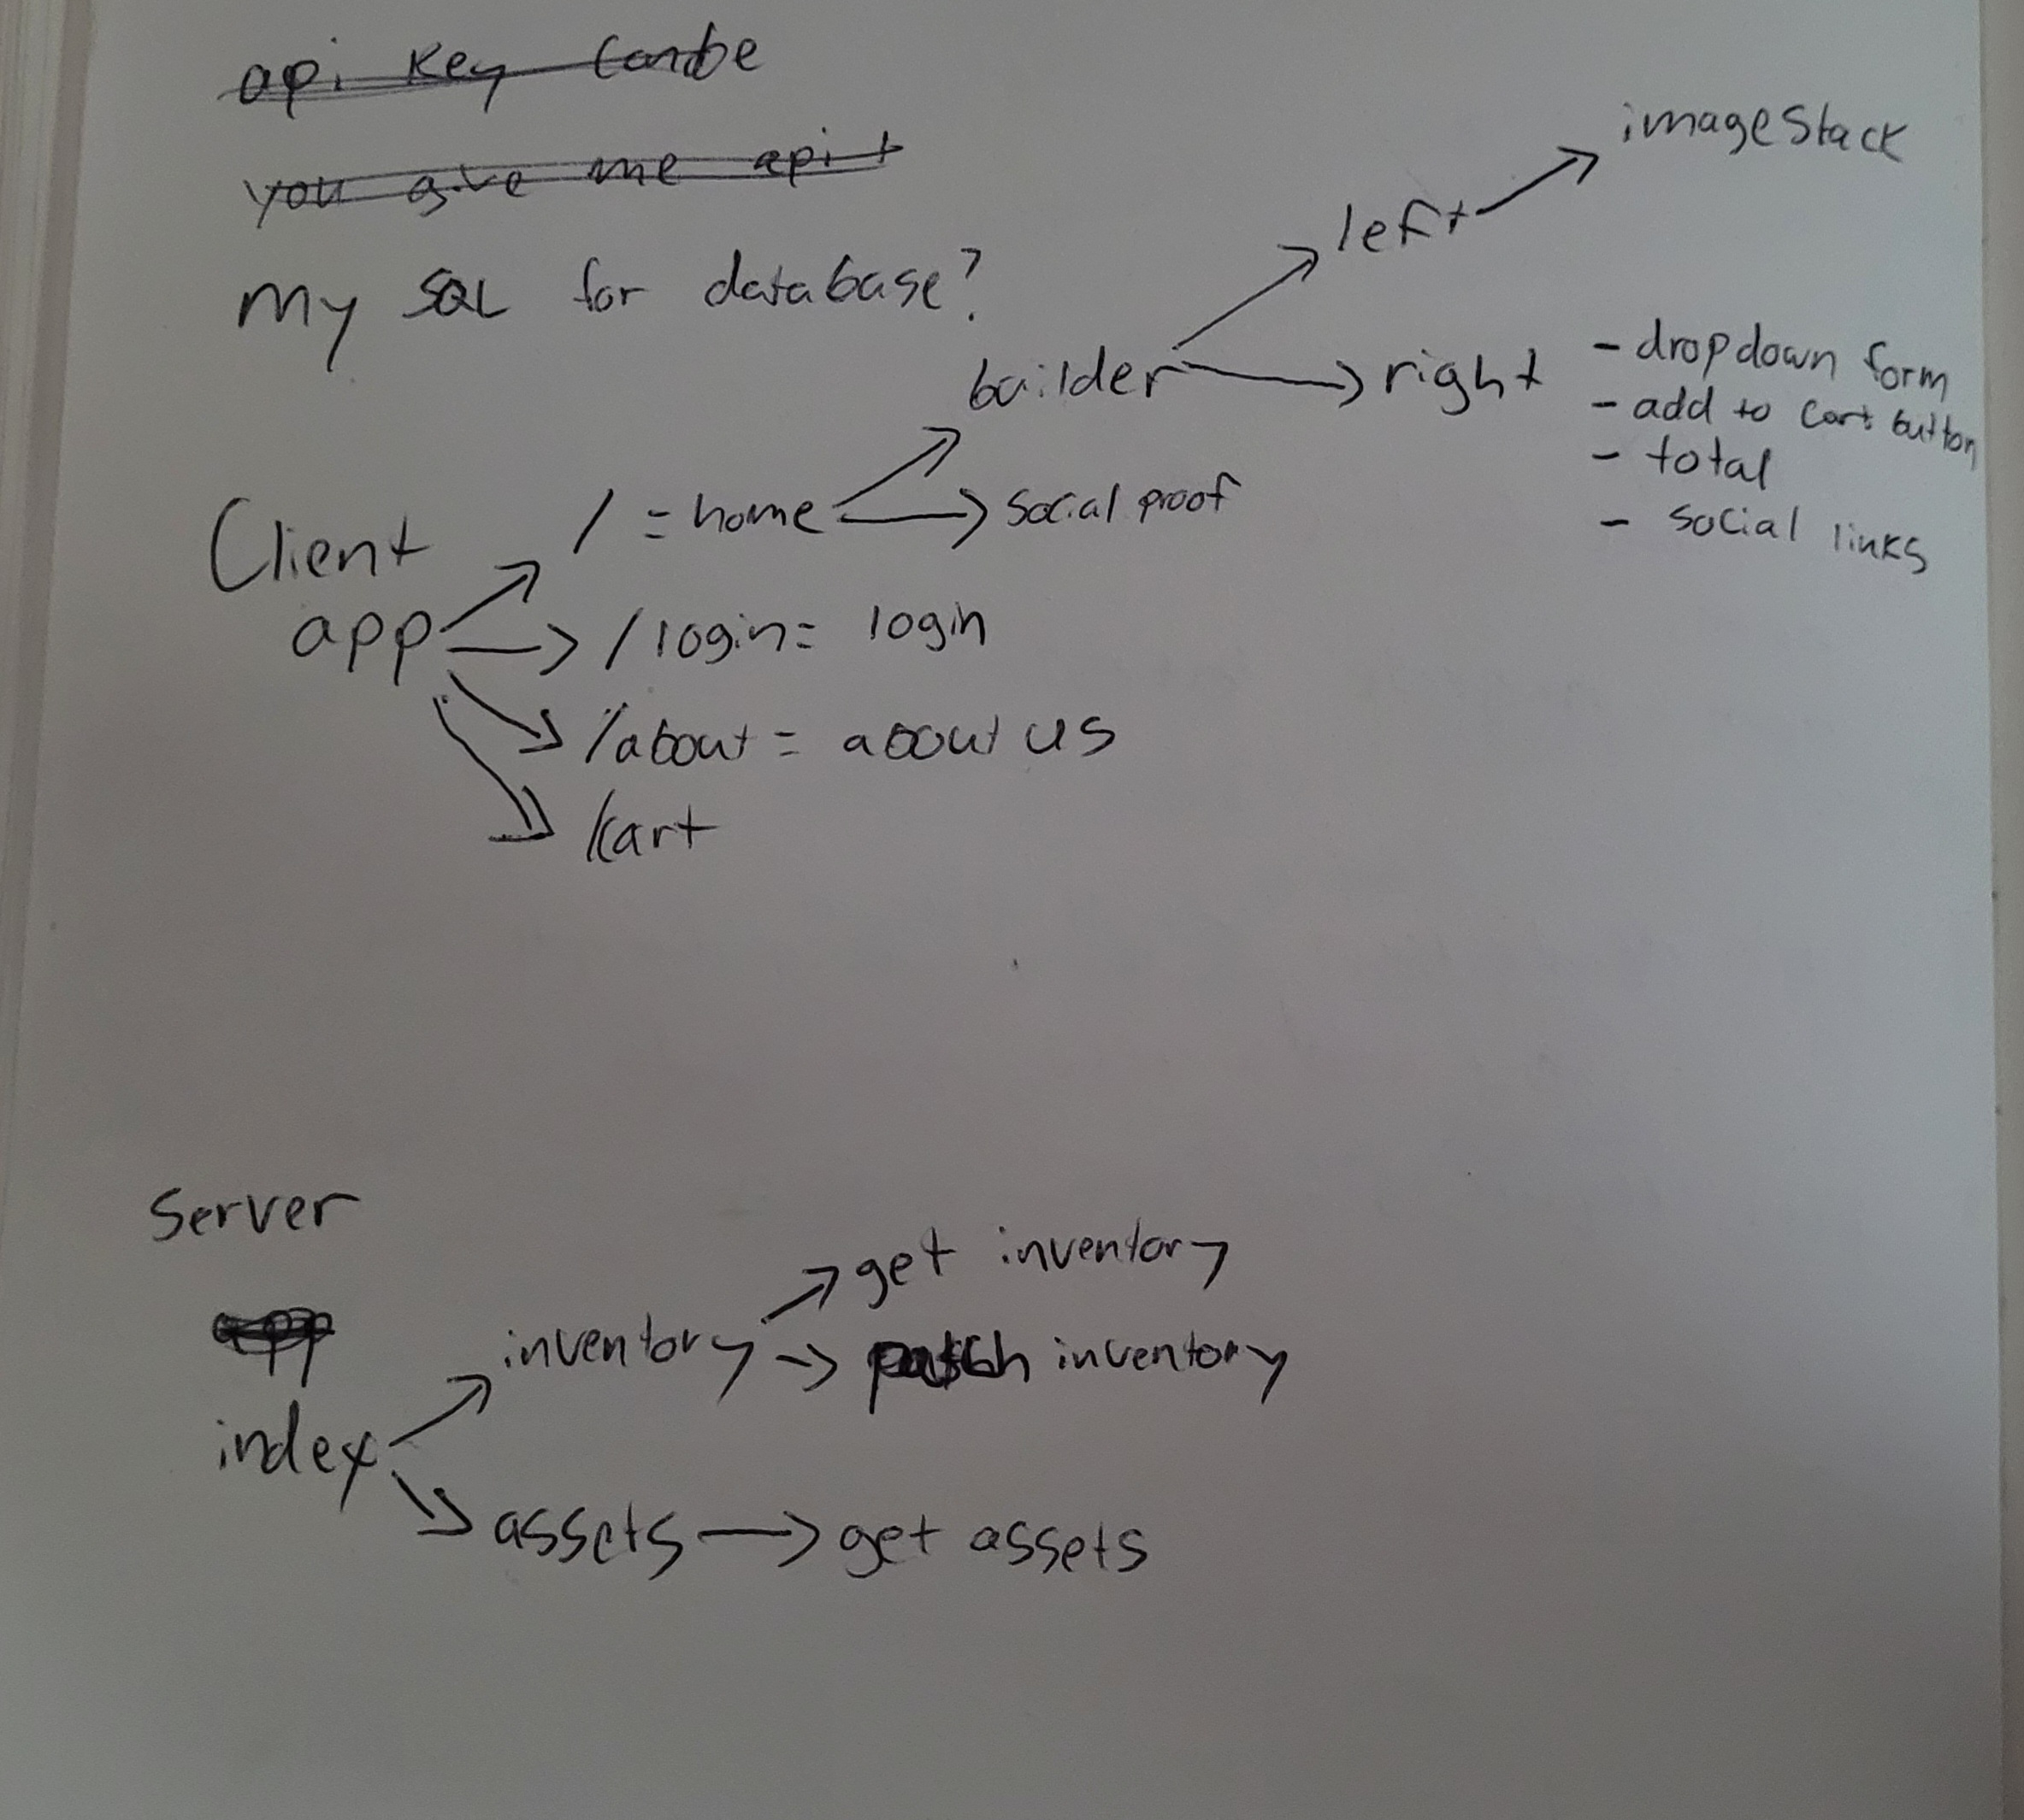 api key can be
you give me api +
my SQL for database?
imageStack
left
builder
right
- dropdown form
- add to cart button
- total
- social links
/ = home
social proof
Client
app
/login = login
/about = about us
/cart
Server
app
get inventory
inventory
patch inventory
index
assets
get assets